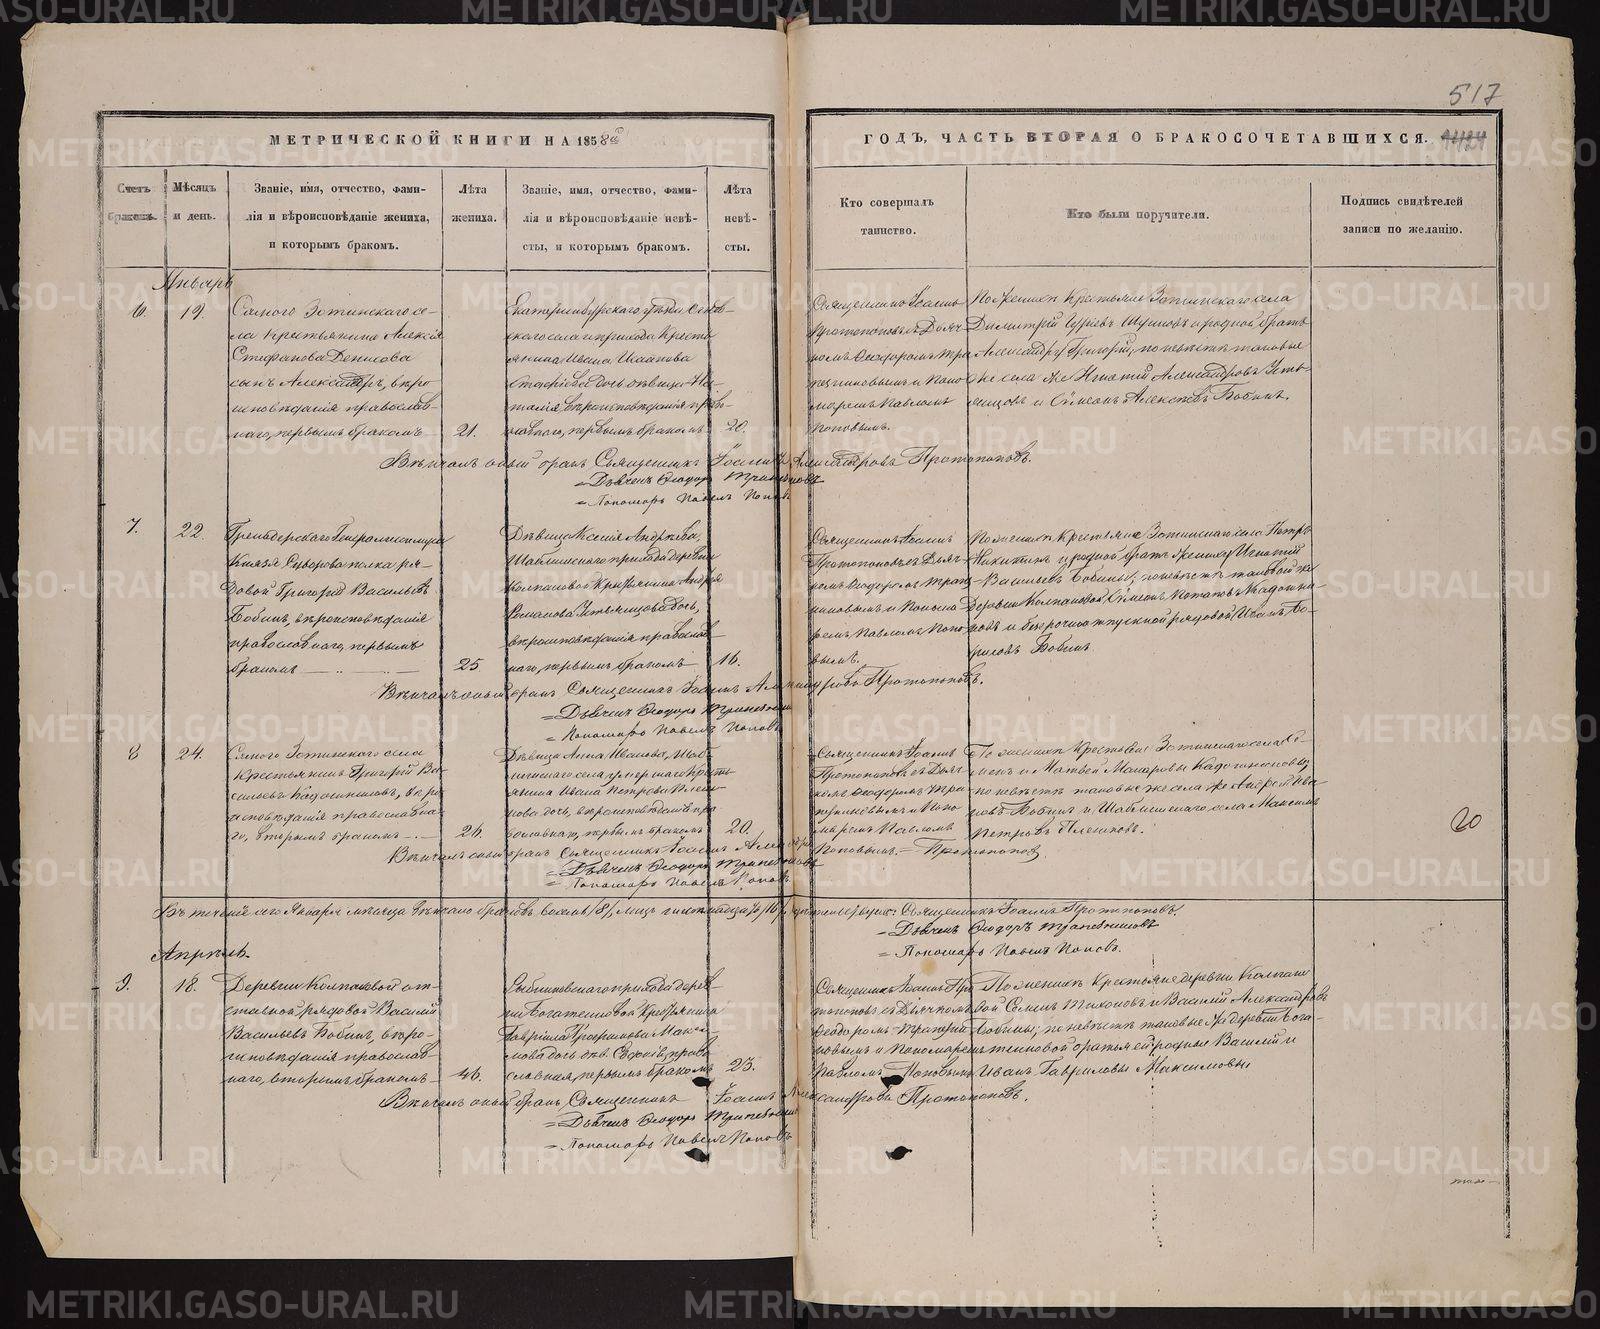 517
МЕТРИЧЕСКОЙ КНИГИ НА 1858й
ГОДЪ, ЧАСТЬ ВТОРАЯ О БРАКОСОЧЕТАВШИХСЯ.
Счетъ браковъ.
Мѣсяцъ и день.
Званіе, имя, отчество, фами-
лія и вѣроисповѣданіе жениха,
и которымъ бракомъ.
Лѣта
жениха.
Званіе, имя, отчество, фами-
лія и вѣроисповѣданіе невѣ-
сты, и которымъ бракомъ.
Лѣта
невѣ-
сты.
Кто совершалъ
таинство.
Кто были поручители.
Подпись свидѣтелей
записи по желанію.
Январь
6. 19.
Самого Зотинскаго се-
ла Крестьянина Алексія
Стефанова Денисова
сынъ Александръ, вѣро
исповѣданія православ-
наго, первымъ бракомъ
21.
Екатеринбургскаго уѣзда
села и прихода Кресть
янина Ивана
дочь дѣвица На-
талія, вѣроисповѣданія пра-
вославнаго, первымъ бракомъ
20.
Священникъ Іоаннъ
Протопоповъ съ Дьяч-
комъ Ѳеодоромъ Тра
пезниковымъ и Поно
маремъ Павломъ
Поповымъ.
По женихѣ Крестьяне Зотинскаго села
Димитрій Гурьевъ и родной братъ
Александру Григорій, по невѣстѣ таковые
же села же Игнатій Александровъ Усть-
янцовъ и Сѵмеонъ Алексѣевъ Бобинъ.
Вѣнчалъ оный бракъ Священникъ Іоаннъ Александровъ Протопоповъ.
= Дьячекъ Ѳеодоръ Трапезниковъ
= Пономарь Павелъ Поповъ
7. 22.
Гренадерскаго Генералиссимуса
Князя Суворова полка ря-
довой Григорій Васильевъ
Бобинъ, вѣроисповѣданія
православнаго, первымъ
бракомъ
25
Дѣвица Ксенія Андреева,
Шаблишскаго прихода деревни
Колпаковой Крестьянина Андрея
Романова Устьянцова дочь,
вѣроисповѣданія православ
наго, первымъ бракомъ
16.
Священникъ Іоаннъ
Протопоповъ съ Дьяч-
комъ Ѳеодоромъ Трапез
никовымъ и Понома
ремъ Павломъ Попо
вымъ.
По женихѣ Крестьяне Зотинскаго села Петръ
Никитинъ и родной братъ жениху Игнатій
Васильевъ Бобины; по невѣстѣ таковой же
деревни Колпаковой, Сѵмеонъ Потаповъ Кадочни
ковъ и безсрочноотпускной рядовой Иванъ Бо-
рисовъ Бобинъ.
Вѣнчалъ оный бракъ Священникъ Іоаннъ Александровъ Протопоповъ.
= Дьячекъ Ѳеодоръ Трапезниковъ
= Пономарь Павелъ Поповъ
8 24.
Самого Зотинскаго села
Крестьянинъ Григорій Ва-
сильевъ Кадочниковъ, вѣро
исповѣданія православна-
го, вторымъ бракомъ
26.
Дѣвица Анна Иванова, Шаб-
лишскаго села умершаго Кресть
янина Ивана Петрова Плеш-
кова дочь, вѣроисповѣданія пра
вославнаго, первымъ бракомъ
20.
Священникъ Іоаннъ
Протопоповъ съ Дьяч
комъ Ѳеодоромъ Тра
пезниковымъ и Поно
маремъ Павломъ
Поповымъ.
По женихѣ Крестьяне Зотинскаго села
и Матвей Макаровы Кадочниковы;
по невѣстѣ таковые же села же Андрей Ива
новъ Бобинъ и Шаблишскаго села Максимъ
Петровъ Плешковъ.
20
Вѣнчалъ оный бракъ Священникъ Іоаннъ Александровъ Протопоповъ
= Дьячекъ Ѳеодоръ Трапезниковъ
= Пономарь Павелъ Поповъ
Въ теченіе сего Января мѣсяца вѣнчано браковъ восемь /8/, лицъ шестнадцать /16/ Священникъ Іоаннъ Протопоповъ.
= Дьячекъ Ѳеодоръ Трапезниковъ
= Пономарь Павелъ Поповъ.
Апрѣль.
9. 18.
Деревни Колпаковой от-
ставной рядовой Василій
Васильевъ Бобинъ, вѣро-
исповѣданія православ-
наго, вторымъ бракомъ
46.
Рыбниковскаго прихода дерев-
ни Богатенковой Крестьянина
Гавріила Трофимова Макси-
мова дочь дѣв. право
славная, первымъ бракомъ
23.
Священникъ Іоаннъ Про
топоповъ съ Дьячкомъ
Ѳеодоромъ Трапезни
ковымъ и Пономаремъ
Павломъ Поповымъ
По женихѣ Крестьяне деревни Колпако
вой Семенъ Тихоновъ и Василій Александровъ
Бобины; по невѣстѣ таковые же деревни Бога-
тенковой братья ей родные Василій и
Иванъ Гавриловы Максимовы
Вѣнчалъ оный бракъ Священникъ Іоаннъ Александровъ Протопоповъ.
= Дьячекъ Ѳеодоръ Трапезниковъ
= Пономарь Павелъ Поповъ
METRIKI.GASO-URAL.RU